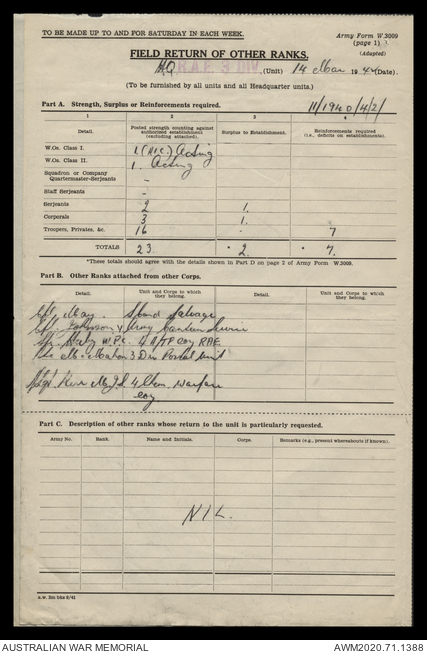 TO BE MADE UP TO AND FOR SATURDAY IN EACH WEEK.
Army Form W.3009
(page 1)
(Adapted)
FIELD RETURN OF OTHER RANKS.
HQ R.A.E. 3 DIV. (Unit) 14 Mar 1944 (Date).
(To be furnished by all units and all Headquarter units.)
11/1940/4/2/
Part A. Strength, Surplus or Reinforcements required.
1 2 3 4
Detail. Posted strength counting against authorised establishment (excluding attached). Surplus to Establishment. Reinforcements required (i.e., deficits on establishments).
W.Os. Class I. 1 Acting
W.Os. Class II. 1. Acting
Squadron or Company Quartermaster-Serjeants -
Staff Serjeants -
Serjeants 2 1.
Corporals 3 1.
Troopers, Privates, &c. 16 - 7
TOTALS 23 * 2 * 7.
*These totals should agree with the details shown in Part D on page 2 of Army Form W.3009.
Part B. Other Ranks attached from other Corps.
Detail. Unit and Corps to which they belong. Detail. Unit and Corps to which they belong.
May. Salvage
Johnson Army Canteen Service
W.P.C. Coy RAE
McMahon 3 Div Postal Unit
Kerr 4 Chem. Warfare
Coy
Part C. Description of other ranks whose return to the unit is particularly requested.
Army No. Rank. Name and Initials. Corps. Remarks (e.g., present whereabouts if known).
NIL.
AUSTRALIAN WAR MEMORIAL
AWM2020.71.1388